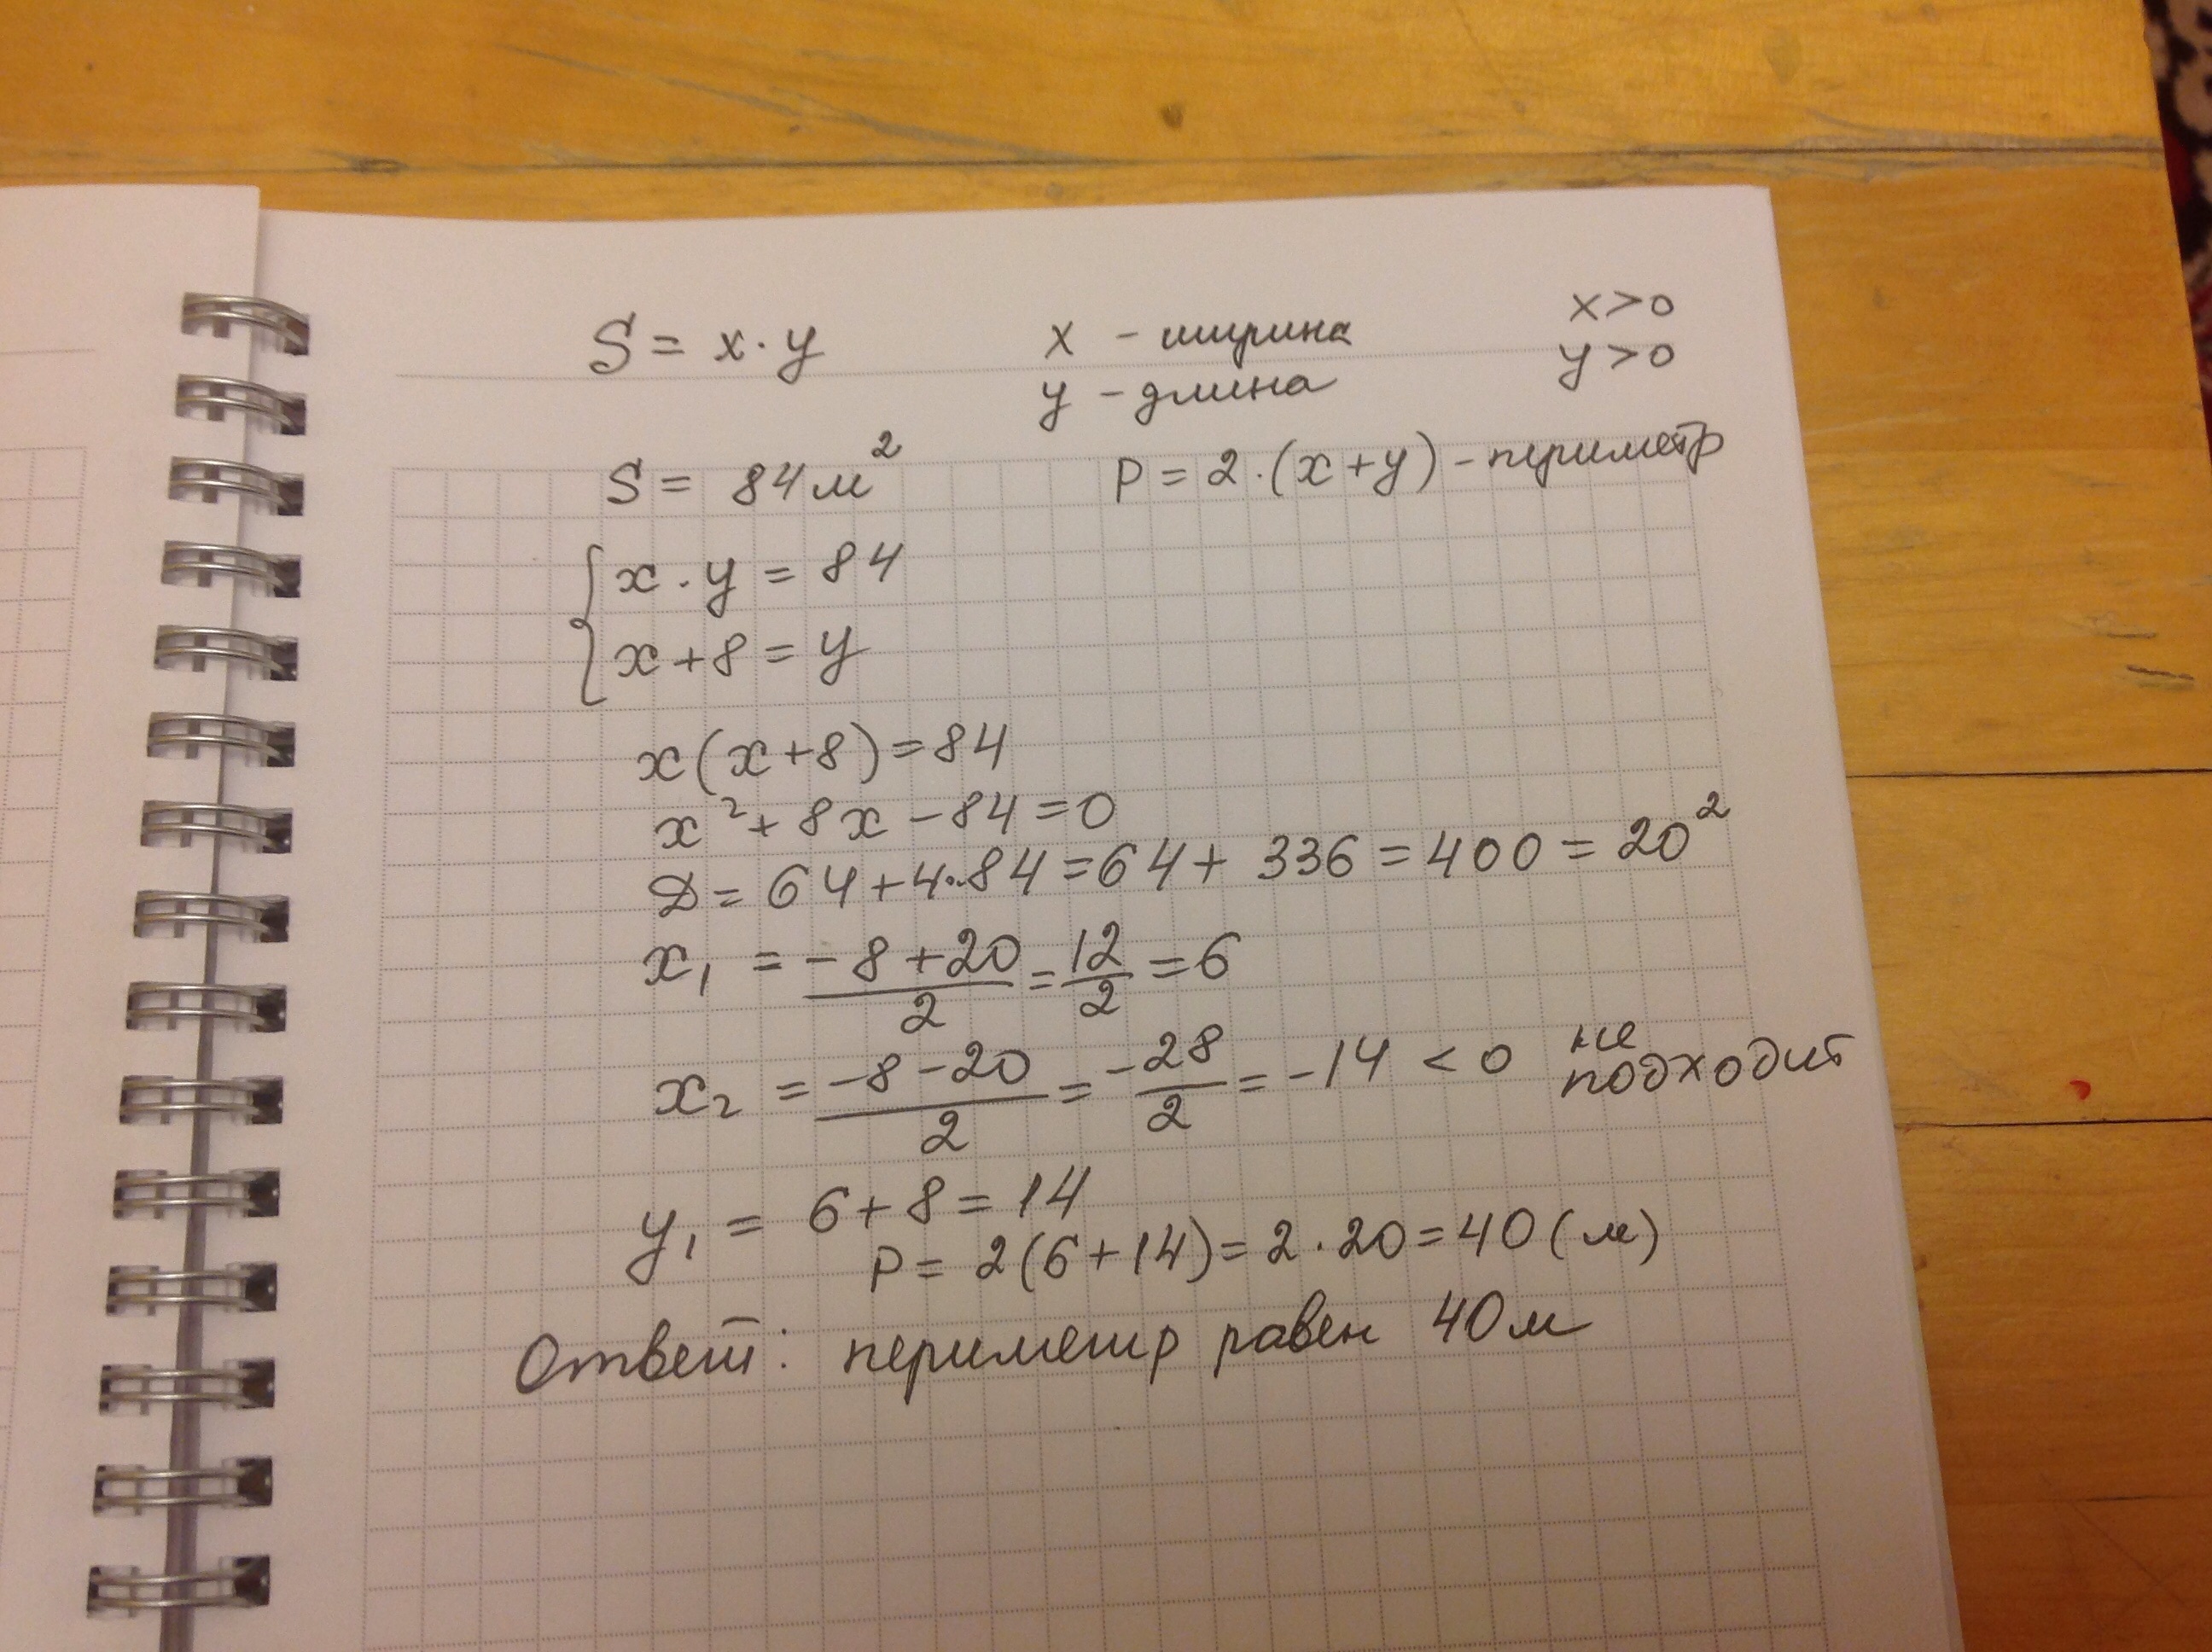 S = x · y    x - ширина    x > 0
y - длина    y > 0
S = 84 м²    P = 2 · (x + y) - периметр
{ x · y = 84
x + 8 = y
x(x + 8) = 84
x² + 8x - 84 = 0
D = 64 + 4 · 84 = 64 + 336 = 400 = 20²
x₁ = (-8 + 20)/2 = 12/2 = 6
x₂ = (-8 - 20)/2 = -28/2 = -14 < 0 не подходит
y₁ = 6 + 8 = 14
P = 2(6 + 14) = 2 · 20 = 40 (м)
Ответ: периметр равен 40 м